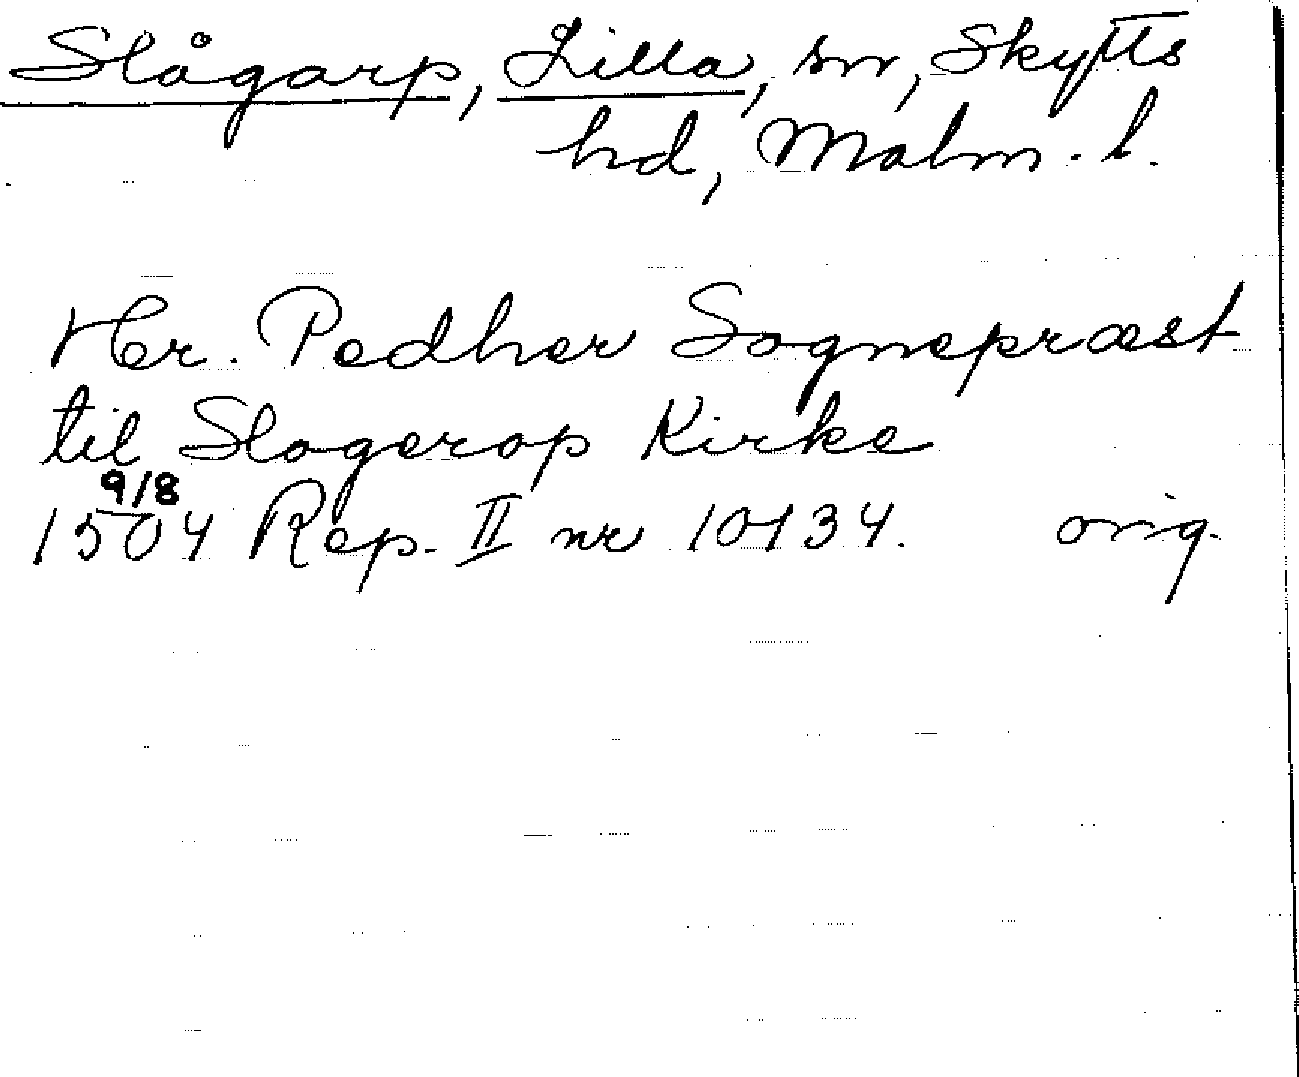 Slågarp, Lilla, sn, Skytts
hd, Malm. l.
Hr. Pedher Sognepræst
til Slogerop Kirke
9/8
1504 Rep. II nr 10134. orig.